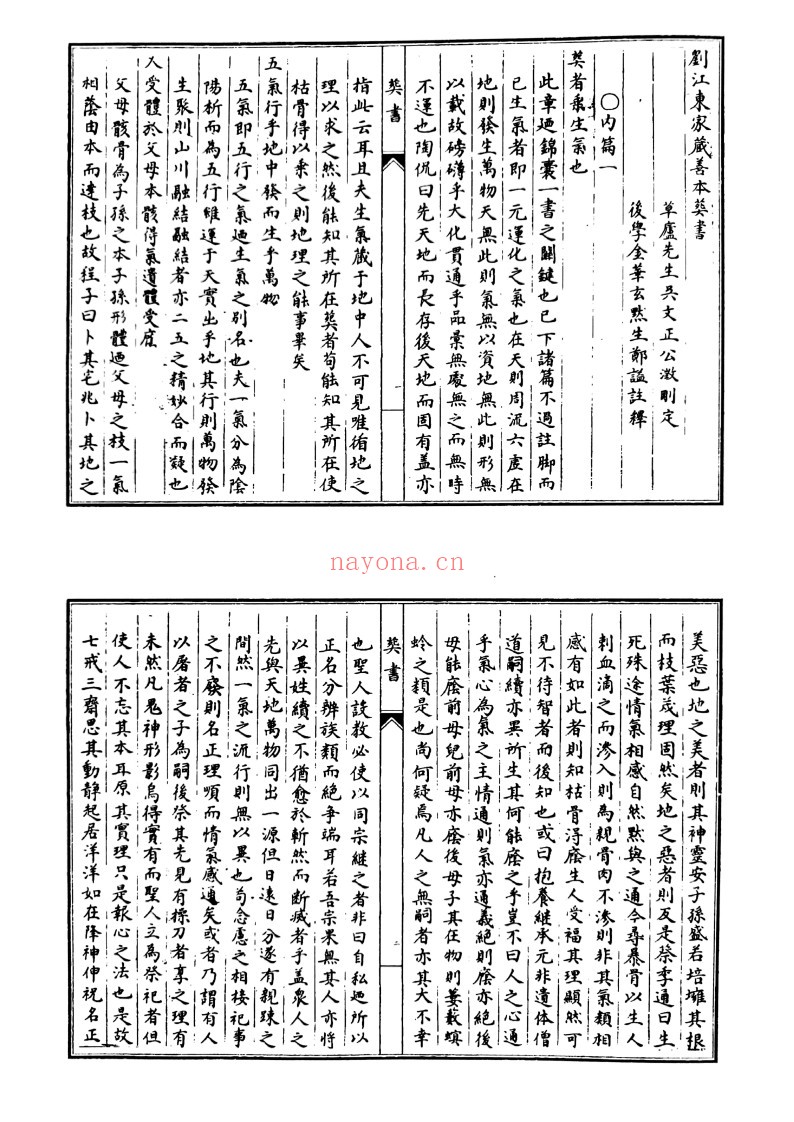 劉江東家藏善本葬書
草廬先生吳文正公澂刪定
後學金華玄默生鄭謐註釋
○內篇一
葬者乘生氣也
此章迺錦囊一書之關鍵也已下諸篇不過註脚而
已生氣者即一元運化之氣也在天則周流六虛在
地則發生萬物天無此則氣無以資地無此則形無
以載故磅礴乎大化貫通乎品彙無處無之而無時
不運也陶侃曰先天地而長存後天地而固有盖亦
葬書
一
指此云耳且夫生氣藏于地中人不可見唯循地之
理以求之然後能知其所在葬者苟能知其所在使
枯骨得以乘之則地理之能事畢矣
五氣行乎地中發而生乎萬物
五氣即五行之氣迺生氣之別名也夫一氣分為陰
陽析而為五行雖運于天實出乎地其行則萬物發
生聚則山川融結融結者亦二五之精妙合而凝也
人受體於父母本骸得氣遺體受廕
父母骸骨為子孫之本子孫形體迺父母之枝一氣
相蔭由本而達枝也故程子曰卜其宅兆卜其地之
nayona.cn
美惡也地之美者則其神靈安子孫盛若培壅其根
而枝葉茂理固然矣地之惡者則反是蔡季通曰生
死殊途情氣相感自然默與之通今尋暴骨以生人
刺血滴之而滲入則為親骨肉不滲則非其氣類相
感有如此者則知枯骨得廕生人受福其理顯然可
見不待智者而後知也或曰抱養継承元非遺体僧
道嗣續亦異所生其何能廕之乎豈不曰人之心通
乎氣心為氣之主情通則氣亦通義絕則廕亦絕後
母能廕前母兒前母亦廕後母子其在物則萎蕺螟
蛉之類是也尚何疑焉凡人之無嗣者亦其大不幸
葬書
二
也聖人設教必使以同宗継之者非曰自私迺所以
正名分辨族類而絕爭端耳若吾宗果無其人亦將
以異姓續之不猶愈於斬然而断滅者乎盖衆人之
先與天地萬物同出一源但日遠日分遂有親踈之
間然一氣之流行則無以異也苟念慮之相接祀事
之不廢則名正理順而情氣感通矣或者乃謂有人
以屠者之子為嗣後祭其先見有操刀者享之理有
未然凡鬼神形影烏得實有而聖人立為祭祀者但
使人不忘其本耳原其實理只是報心之法也是故
七戒三齋思其動靜起居洋洋如在降神伸祝名正